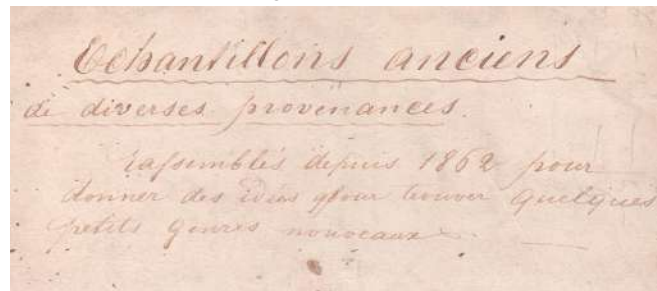 Echantillons anciens
de diverses provenances.
Rassemblés depuis 1862 pour
donner des idées pour trouver quelques
petits genres nouveaux.